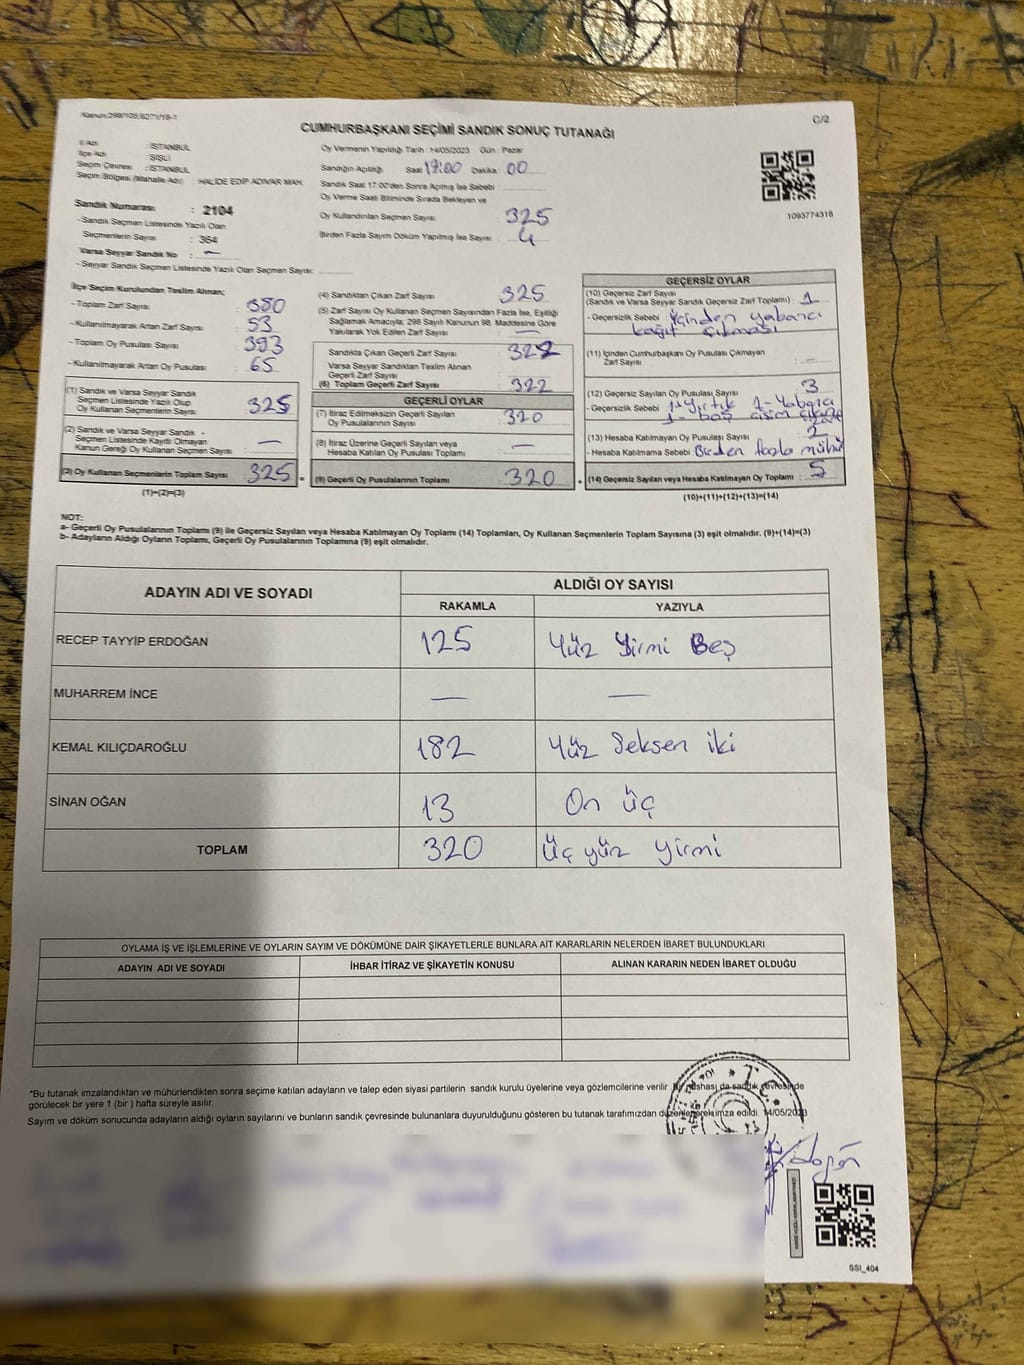 Kanun:298/105;6271/18-1
C/2
CUMHURBAŞKANI SEÇİMİ SANDIK SONUÇ TUTANAĞI
İl Adı : İSTANBUL
İlçe Adı : ŞİŞLİ
Seçim Çevresi : İSTANBUL
Seçim Bölgesi (Mahalle Adı) : HALİDE EDİP ADIVAR MAH.
Sandık Numarası : 2104
- Sandık Seçmen Listesinde Yazılı Olan
Seçmenlerin Sayısı : 364
Varsa Seyyar Sandık No : —
- Seyyar Sandık Seçmen Listesinde Yazılı Olan Seçmen Sayısı:
Oy Vermenin Yapıldığı Tarih :14/05/2023 Gün : Pazar
Sandığın Açıldığı Saat 17:00 Dakika : 00
Sandık Saat 17:00'den Sonra Açılmış İse Sebebi :
Oy Verme Saati Bitiminde Sırada Bekleyen ve
Oy Kullandırılan Seçmen Sayısı : 325
Birden Fazla Sayım Döküm Yapılmış İse Sayısı : 4
1093774318
İlçe Seçim Kurulundan Teslim Alınan;
- Toplam Zarf Sayısı : 380
- Kullanılmayarak Artan Zarf Sayısı : 53
- Toplam Oy Pusulası Sayısı : 393
- Kullanılmayarak Artan Oy Pusulası : 65
(1) Sandık ve Varsa Seyyar Sandık
Seçmen Listesinde Yazılı Olup
Oy Kullanan Seçmenlerin Sayısı : 325
(2) Sandık ve Varsa Seyyar Sandık -
Seçmen Listesinde Kayıtlı Olmayan
Kanun Gereği Oy Kullanan Seçmen Sayısı : —
(3) Oy Kullanan Seçmenlerin Toplam Sayısı : 325
(1)+(2)=(3)
(4) Sandıktan Çıkan Zarf Sayısı : 325
(5) Zarf Sayısı Oy Kullanan Seçmen Sayısından Fazla İse, Eşitliği
Sağlamak Amacıyla, 298 Sayılı Kanunun 98. Maddesine Göre
Yakılarak Yok Edilen Zarf Sayısı : —
Sandıkta Çıkan Geçerli Zarf Sayısı : 322
Varsa Seyyar Sandıktan Teslim Alınan
Geçerli Zarf Sayısı :
(6) Toplam Geçerli Zarf Sayısı : 322
GEÇERLİ OYLAR
(7) İtiraz Edilmeksizin Geçerli Sayılan
Oy Pusulalarının Sayısı : 320
(8) İtiraz Üzerine Geçerli Sayılan veya
Hesaba Katılan Oy Pusulası Toplamı : —
(9) Geçerli Oy Pusulalarının Toplamı : 320
GEÇERSİZ OYLAR
(10) Geçersiz Zarf Sayısı
(Sandık ve Varsa Seyyar Sandık Geçersiz Zarf Toplamı) : 1
- Geçersizlik Sebebi : İçinden yabancı
kağıt çıkması
(11) İçinden Cumhurbaşkanı Oy Pusulası Çıkmayan
Zarf Sayısı : —
(12) Geçersiz Sayılan Oy Pusulası Sayısı : 3
- Geçersizlik Sebebi : 1-Yırtık 1-Yabancı
1- boş cisim
(13) Hesaba Katılmayan Oy Pusulası Sayısı : 2
- Hesaba Katılmama Sebebi : Birden fazla mühür
(14) Geçersiz Sayılan veya Hesaba Katılmayan Oy Toplamı : 5
(10)+(11)+(12)+(13)=(14)
NOT:
a- Geçerli Oy Pusulalarının Toplamı (9) ile Geçersiz Sayılan veya Hesaba Katılmayan Oy Toplamı (14) Toplamları, Oy Kullanan Seçmenlerin Toplam Sayısına (3) eşit olmalıdır. (9)+(14)=(3)
b- Adayların Aldığı Oyların Toplamı, Geçerli Oy Pusulalarının Toplamına (9) eşit olmalıdır.
ADAYIN ADI VE SOYADI
ALDIĞI OY SAYISI
RAKAMLA YAZIYLA
RECEP TAYYİP ERDOĞAN 125 Yüz Yirmi Beş
MUHARREM İNCE — —
KEMAL KILIÇDAROĞLU 182 Yüz Seksen iki
SİNAN OĞAN 13 On üç
TOPLAM 320 Üç yüz yirmi
OYLAMA İŞ VE İŞLEMLERİNE VE OYLARIN SAYIM VE DÖKÜMÜNE DAİR ŞİKAYETLERLE BUNLARA AİT KARARLARIN NELERDEN İBARET BULUNDUKLARI
ADAYIN ADI VE SOYADI İHBAR İTİRAZ VE ŞİKAYETİN KONUSU ALINAN KARARIN NEDEN İBARET OLDUĞU
*Bu tutanak imzalandıktan ve mühürlendikten sonra seçime katılan adayların ve talep eden siyasi partilerin sandık kurulu üyelerine veya gözlemcilerine verilir. Bir nüshası da sandık çevresinde
görülecek bir yere 1 (bir ) hafta süreyle asılır.
Sayım ve döküm sonucunda adayların aldığı oyların sayılarını ve bunların sandık çevresinde bulunanlara duyurulduğunu gösteren bu tutanak tarafımızdan düzenlenerek imza edildi. 14/05/2023
SSI_404